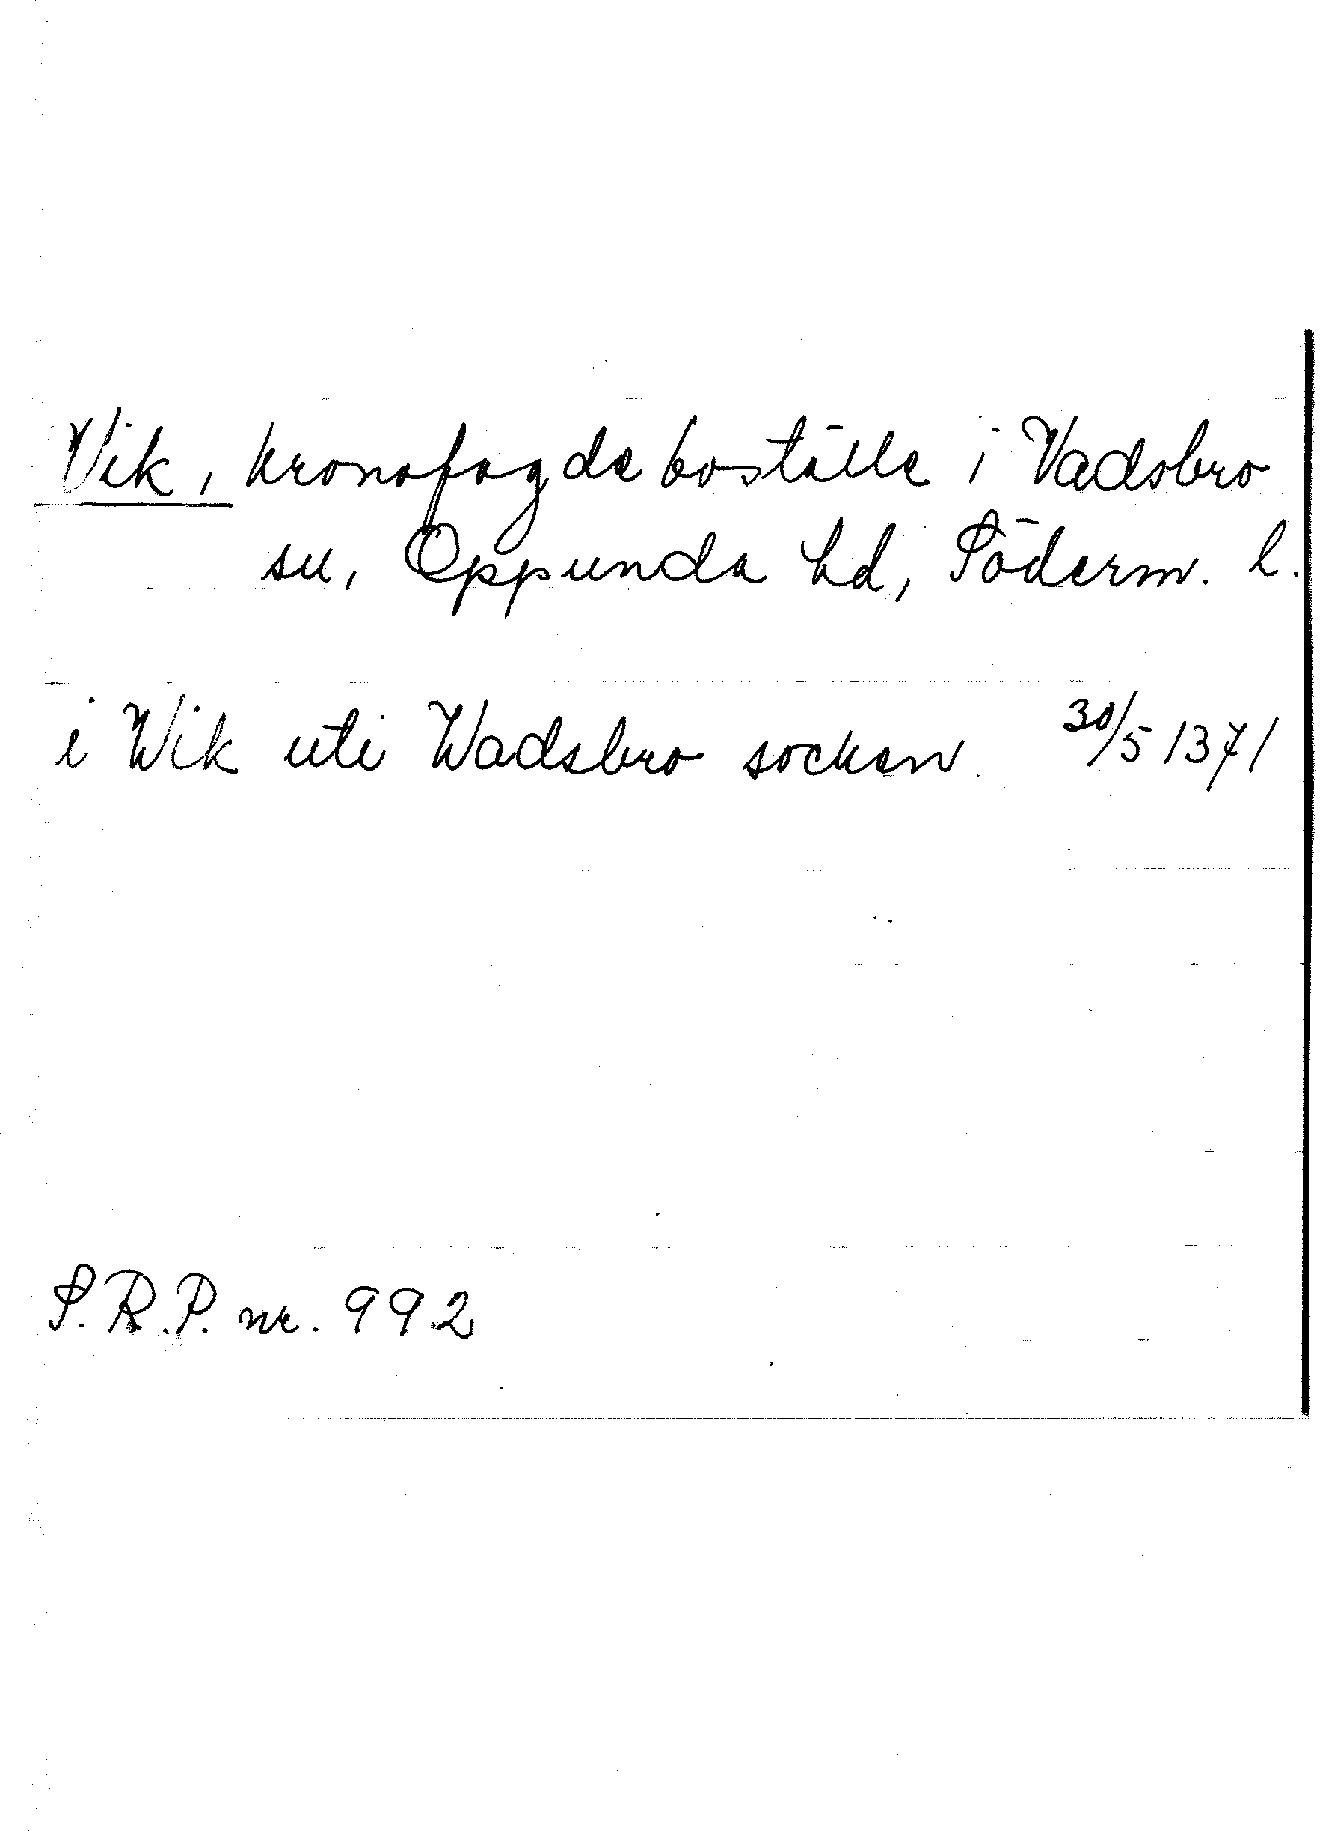 Vik, kronofogdeboställe i Vadsbro
sn, Oppunda hd, Söderm. l.
i Wik uti Wadsbro socken 30/5 1371
S.R.P. nr. 992